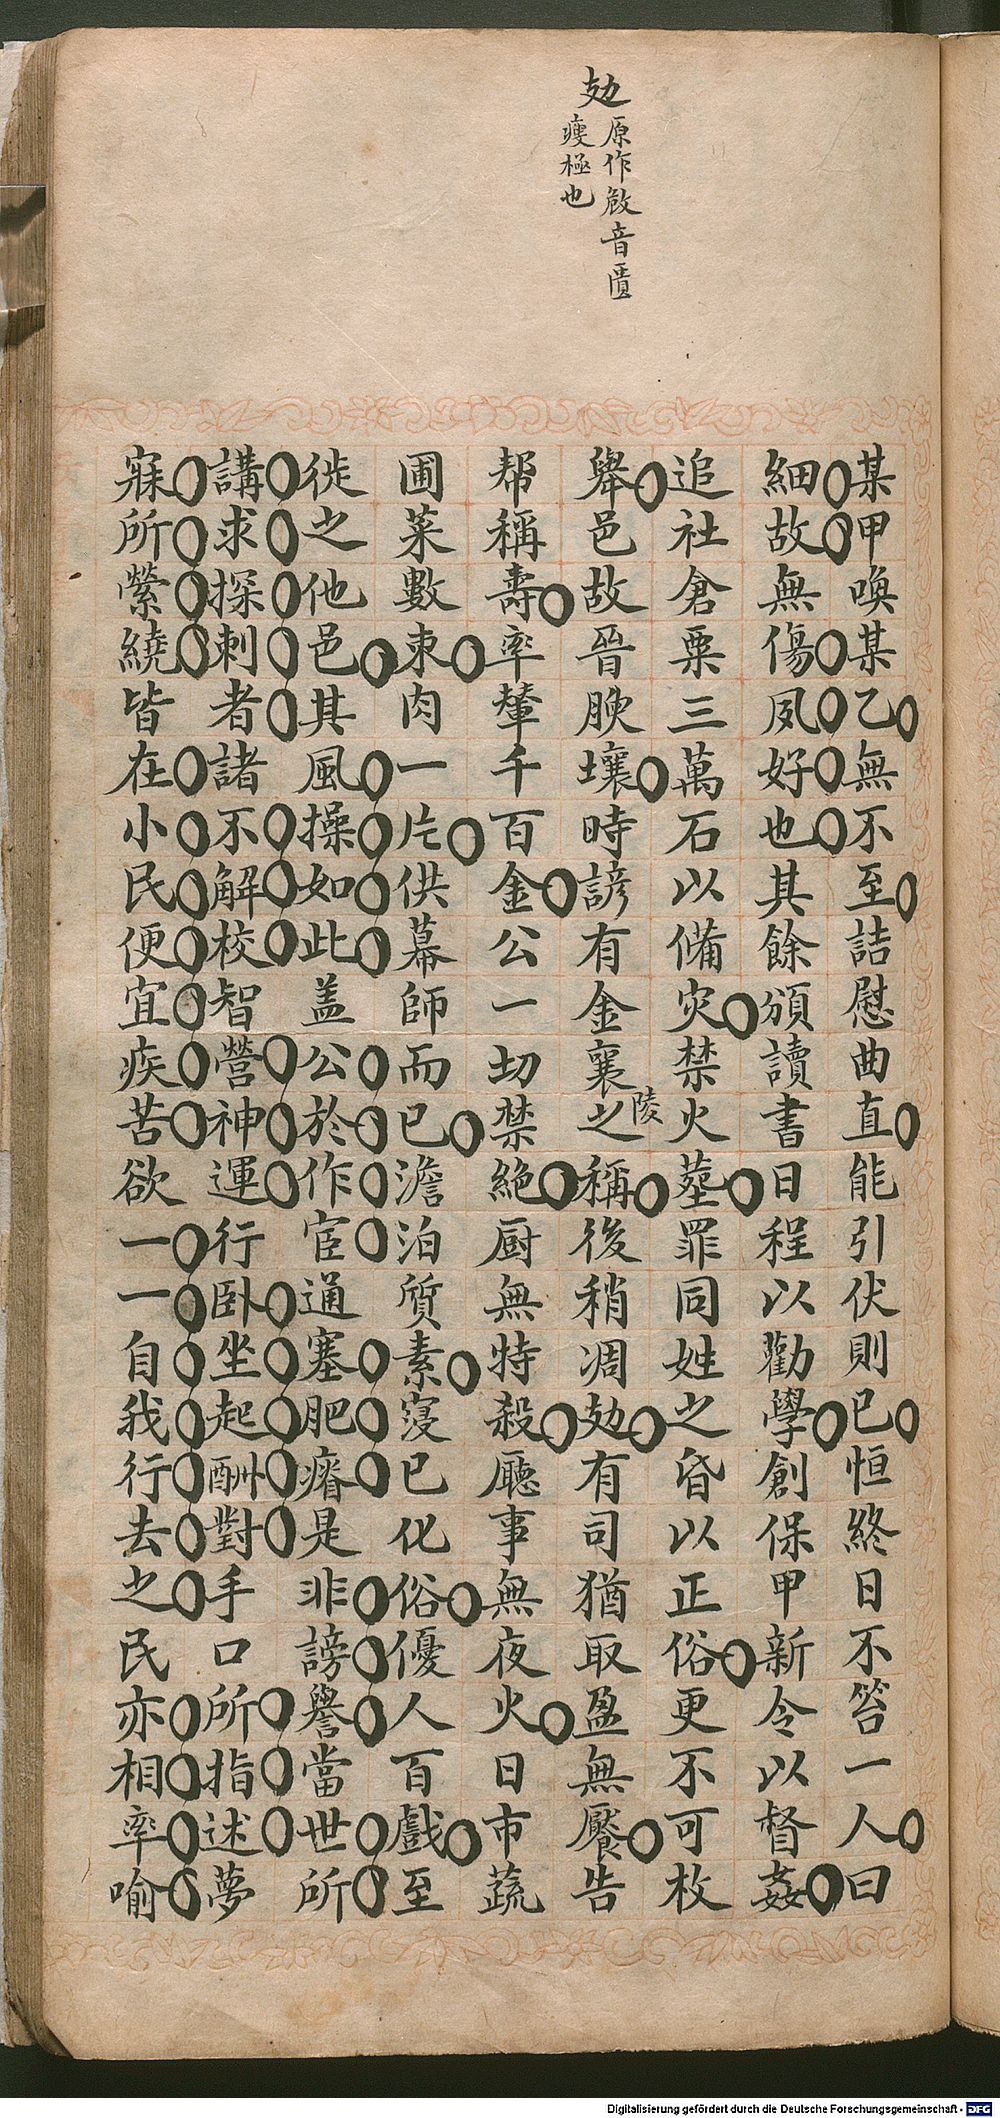 勀原作㪉音匱
瘦極也
某甲喚某乙無不至詰慰曲直能引伏則已恒終日不笞一人曰
細故無傷夙好也其餘頒讀書日程以勸學創保甲新令以督姦
追社倉粟三萬石以備灾禁火塟罪同姓之昏以正俗更不可枚
舉邑故晉腴壤時諺有金襄陵之稱後稍凋勀有司猶取盈無饜告
帮稱壽率輦千百金公一切禁絕厨無特殺廳事無夜火日市蔬
圃菜數束肉一片供幕師而已澹泊質素寖已化俗優人百戲至
徙之他邑其風操如此盖公於作宦通塞肥瘠是非謗譽當世所
講求探刺者諸不解校智營神運行卧坐起酬對手口所指述夢
寐所縈繞皆在小民便宜疾苦欲一一自我行去之民亦相率喻
Digitalisierung gefördert durch die Deutsche Forschungsgemeinschaft - DFG